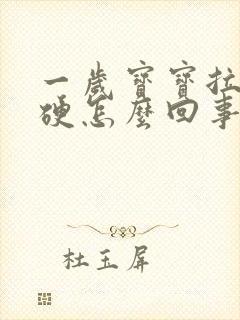 一歲寶寶拉
硬怎麼回事
杜玉屏